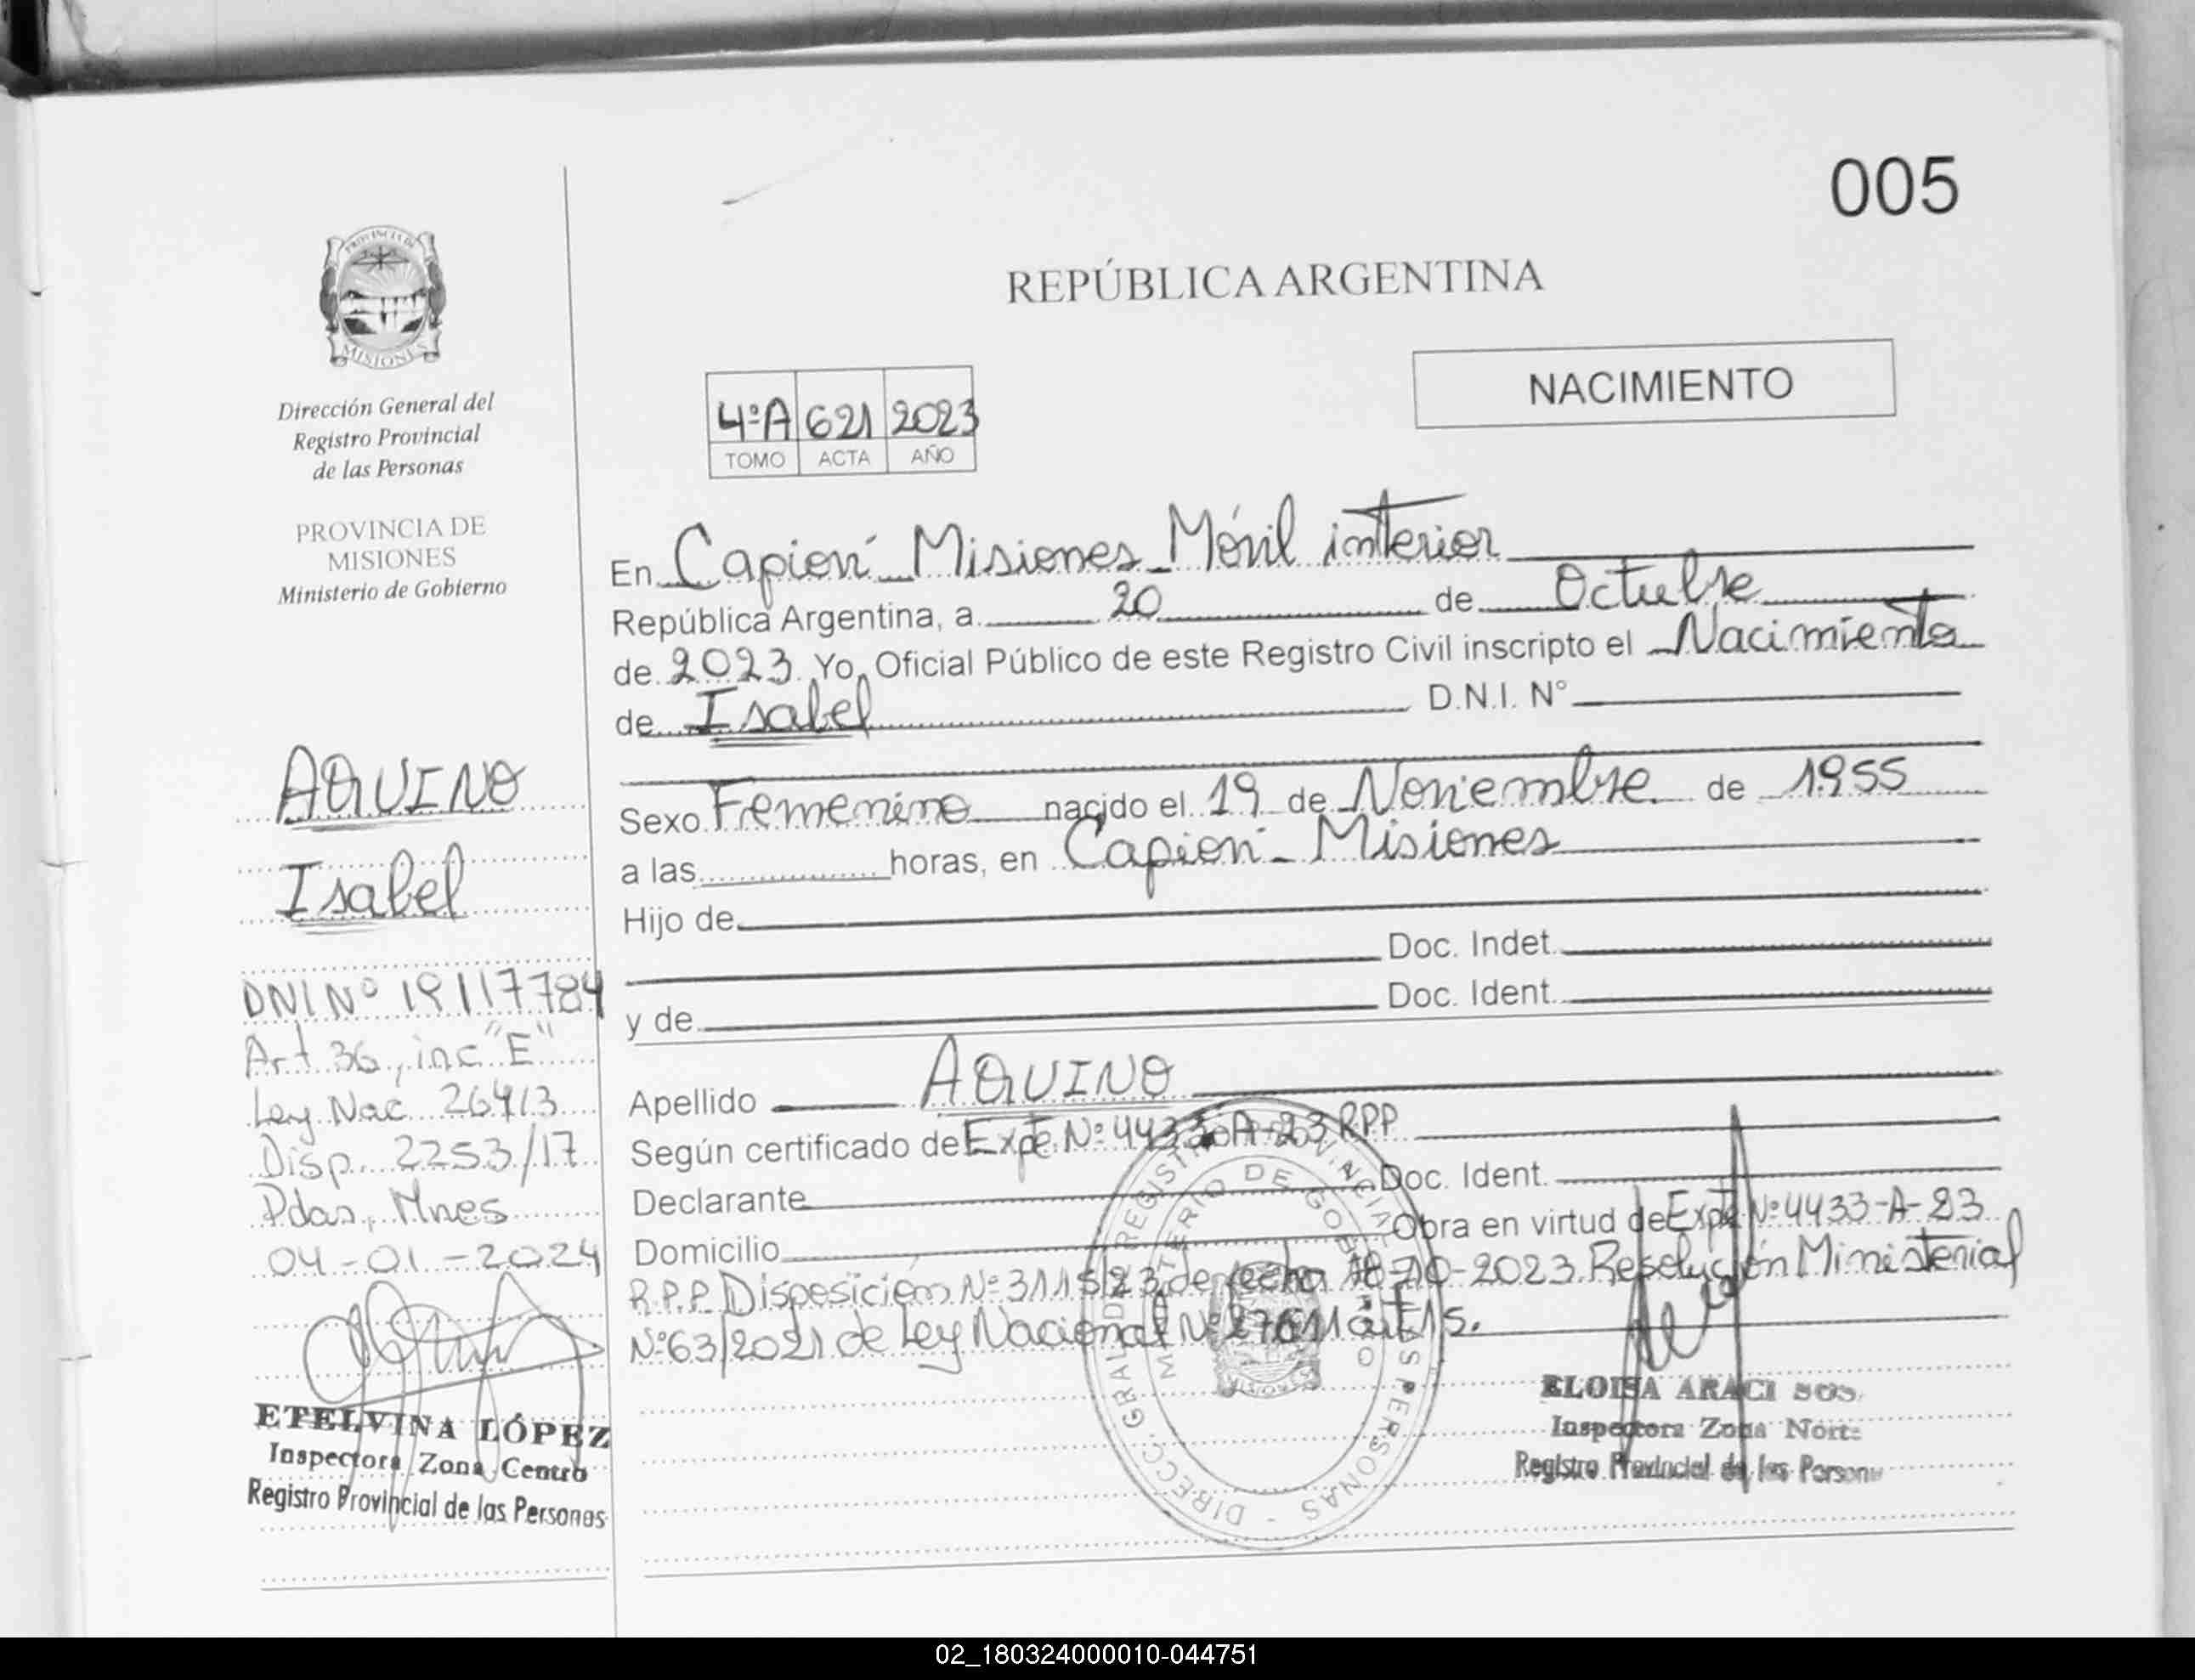 005
PROVINCIA DE
MISIONES
Dirección General del
Registro Provincial
de las Personas
PROVINCIA DE
MISIONES
Ministerio de Gobierno
AQUINO
Isabel
DNI Nº 19117784
Art 36, inc "E"
Ley Nac 26413
Disp. 2253/17
Pdas, Mnes
04-01-2024
ETELVINA LÓPEZ
Inspectora Zona Centro
Registro Provincial de las Personas
REPÚBLICA ARGENTINA
NACIMIENTO
4ºA 621 2023
TOMO ACTA AÑO
En Capioví - Misiones - Móvil interior
República Argentina, a 20 de Octubre
de 2023 Yo, Oficial Público de este Registro Civil inscripto el Nacimiento
de Isabel D.N.I. N°
Sexo Femenino nacido el 19 de Noviembre de 1955
a las horas, en Capioví - Misiones
Hijo de
Doc. Indet.
y de Doc. Ident.
Apellido AQUINO
Según certificado de Expte Nº 4433-A-23 RPP
Declarante Doc. Ident.
Domicilio Obra en virtud de Expte Nº 4433-A-23
R.P.P Disposición Nº 3115/23 de fecha 18-10-2023. Resolución Ministerial
Nº 63/2021 de Ley Nacional Nº 27611 art 15.
DIRECC. GRAL. DE REGISTRO PROVINCIAL DE LAS PERSONAS
MINISTERIO DE GOBIERNO
MISIONES
ELOISA ARACI SOS
Inspectora Zona Norte
Registro Provincial de las Persona
02_180324000010-044751